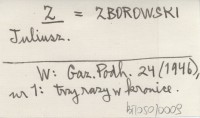 Z = ZBOROWSKI
Juliusz.
W: Gaz. Podh. 24 (1946),
nr 1: trzy razy w kronice.